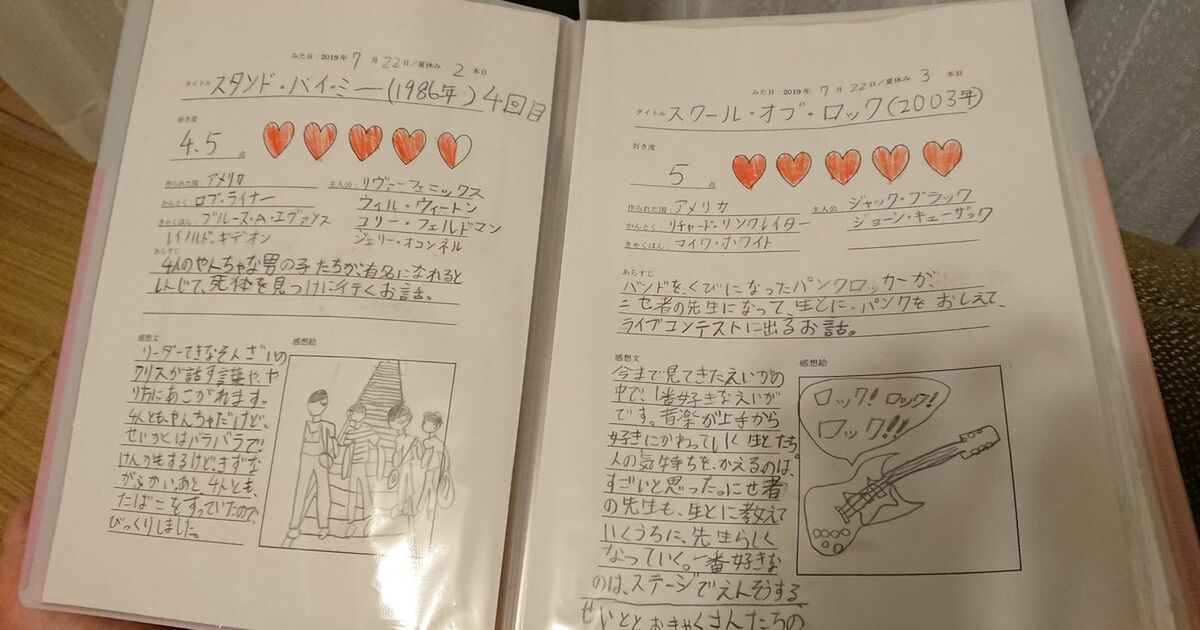 みた日：2019年 7月 22日／夏休み 2 本目
タイトル スタンド・バイ・ミー(1986年) 4回目
好き度
4.5 点
作られた国：アメリカ
かんとく：ロブ・ライナー
きゃくほん：ブルース・A・エヴァンス
レイノルド・ギデオン
主人公：リヴァーフェニックス
ウィル・ウィートン
コリー・フェルドマン
ジェリー・オコンネル
あらすじ
4人のやんちゃな男の子たちが、有名になれると
しんじて、死体を見つけに行くお話。
感想文
リーダーてきなそんざいの
クリスが話す言葉や、や
り方にあこがれます。
4人ともやんちゃだけど、
せいかくはバラバラで!
けんかもするけど、きずな
がふかい。あと、4人とも、
たばこをすっていたので、
びっくりしました。
感想絵
みた日：2019年 7月 22日／夏休み 3 本目
タイトル スクール・オブ・ロック(2003年)
好き度
5 点
作られた国：アメリカ
かんとく：リチャード・リンクレイター
きゃくほん：マイク・ホワイト
主人公：ジャック・ブラック
ジョーン・キューザック
あらすじ
バンドを、くびになったパンクロッカーが、
ニセ者の先生になって、生とに、パンクを おしえて、
ライブコンテストに出るお話。
感想文
今まで見てきたえいがの
中で、1番好きなえいが
です。音楽が上手から
好きにかわっていく 生とたち
人の気持ちを、かえるのは、
すごいと思った。にせ者
の先生も、生とに教えて
いくうちに、先生らしく
なっていく。一番好きな
のは、ステージでえんそうする、
せいとと おきゃくさんたちの
感想絵
ロック! ロック!
ロック!!